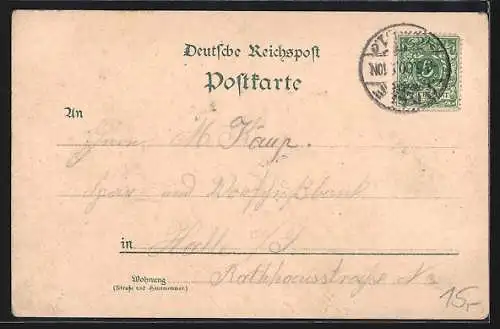 Deutsche Reichspost
Postkarte
An
Herrn M. Kaup.
Spar- und Vorschußbank
in Halle
Wohnung
(Straße und Hausnummer)
Rathhausstraße No
15,-